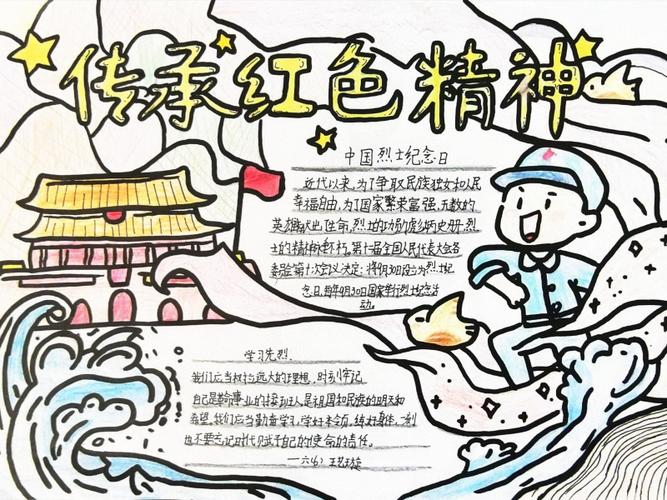 传承红色精神
中国烈士纪念日
近代以来,为了争取民族独立和人民
幸福自由,为了国家繁荣富强,无数的
英雄献出生命,烈士的功勋彪炳史册,烈
士的精神永怀于。第十二届全国人民代表大会常
委会第十次会议决定:将9月30日设立为烈士纪
念日,每年9月30日国家举行烈士纪念活
动。
学习先烈
我们应当树立远大的理想,时刻牢记
自己是革命事业的接班人是祖国和民族的明天和
希望。我们应当勤奋学习,学好本领,练好身体,
也不要忘记时代赋予自己的使命的责任。